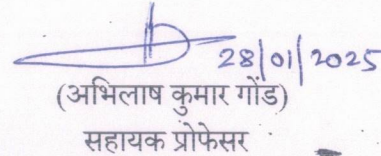 28/01/2025
(अभिलाष कुमार गोंड)
सहायक प्रोफेसर